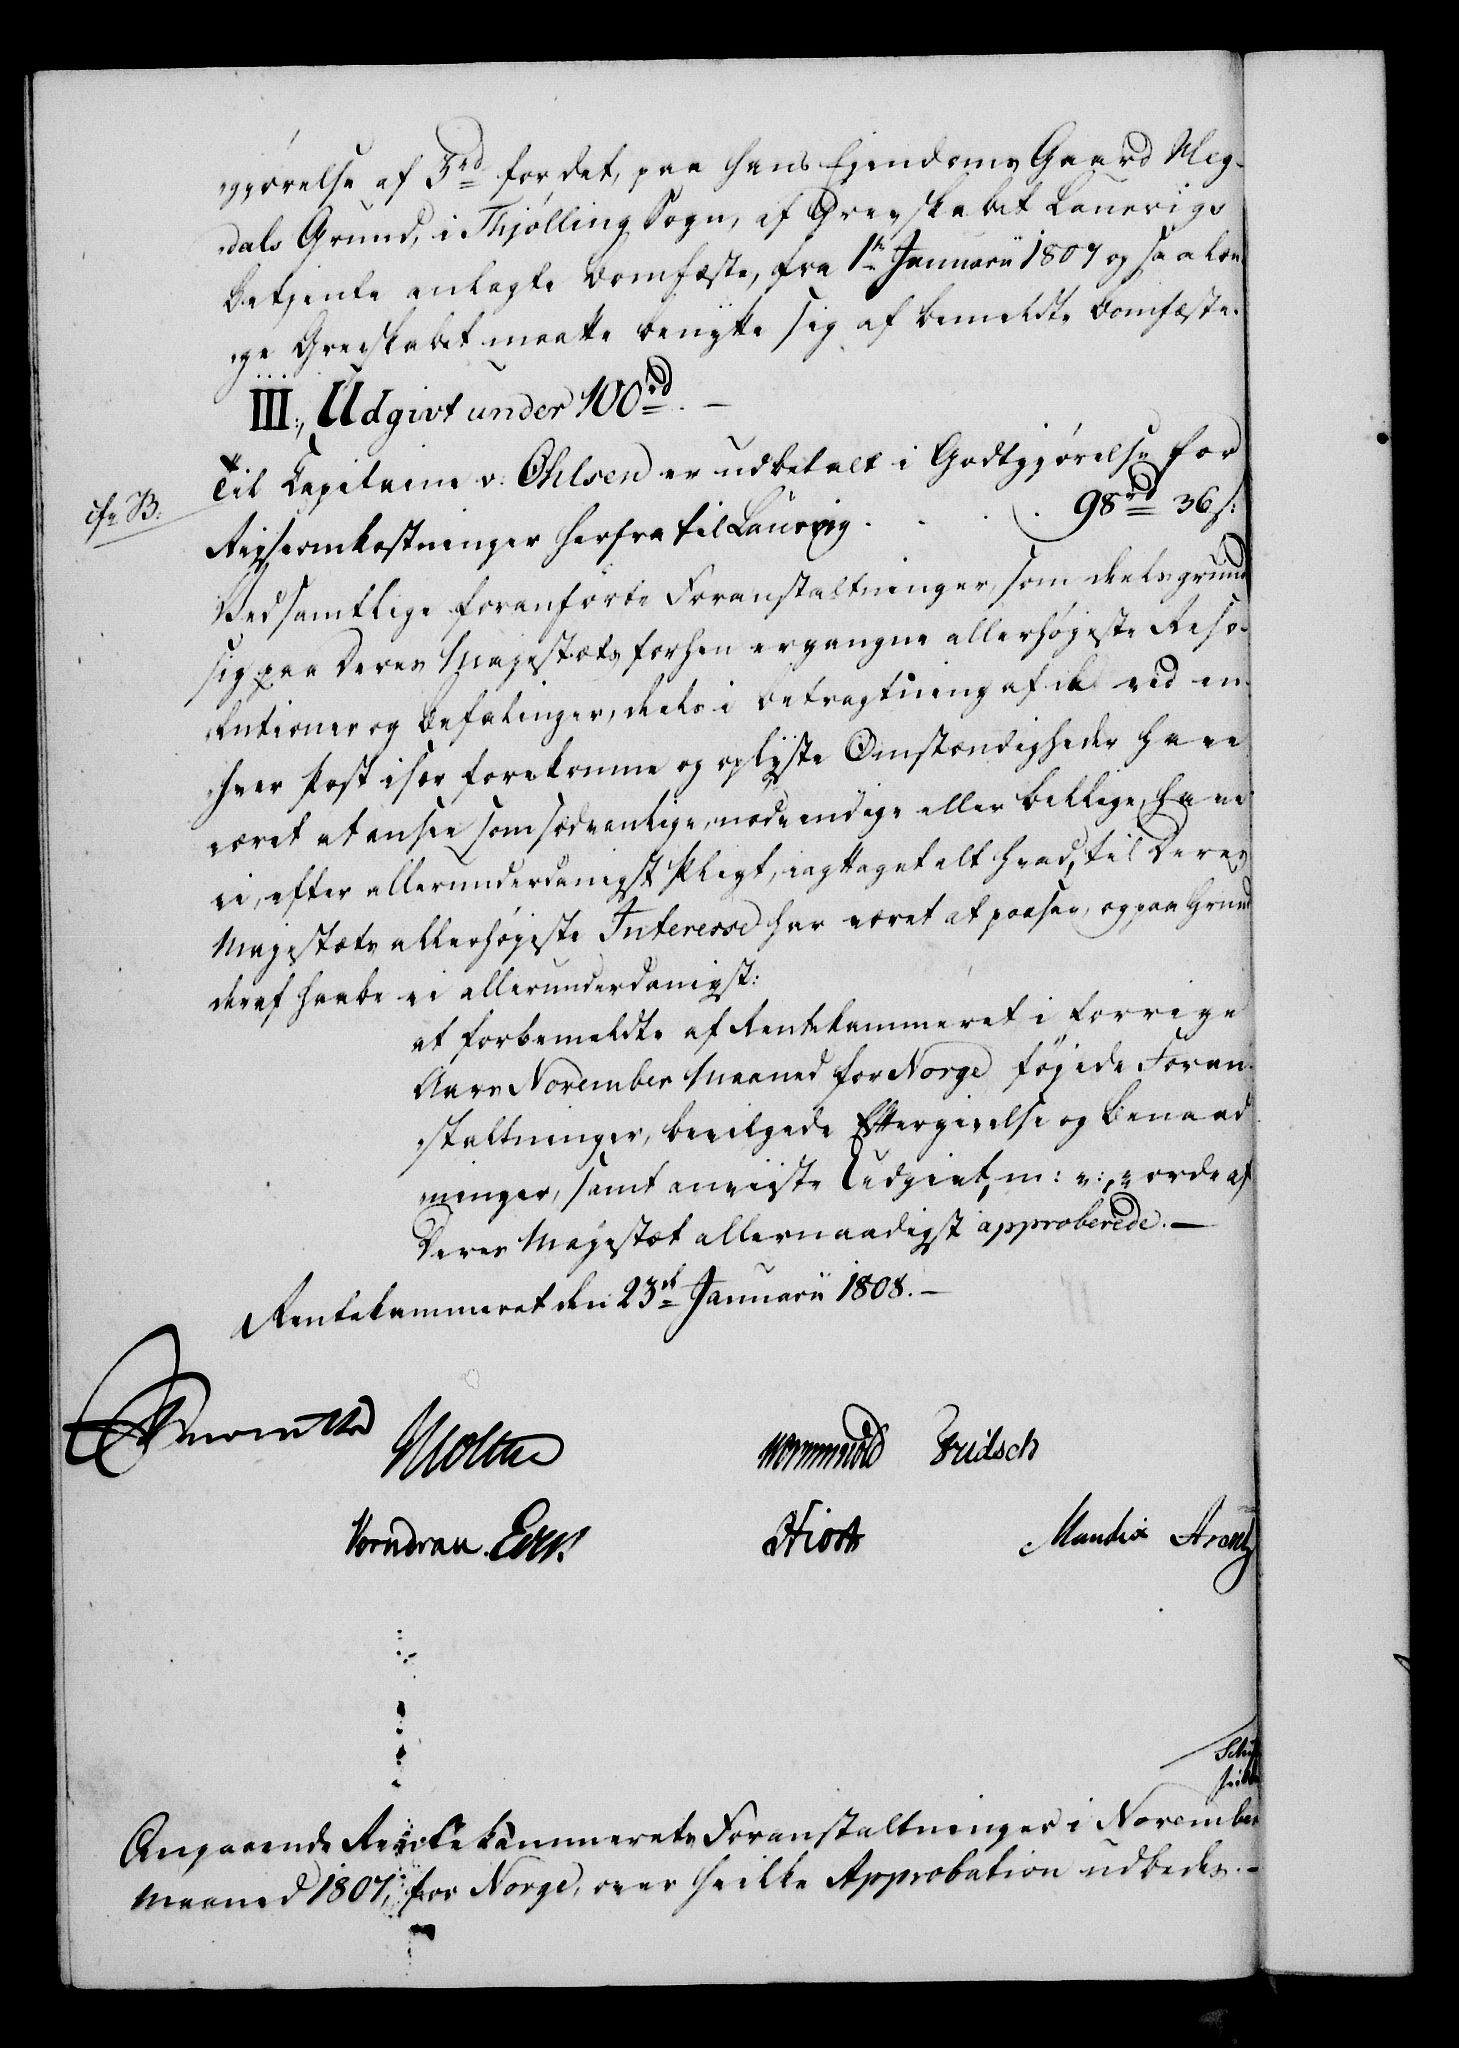 gjørelse af 3rd for det, paa hans Ejendoms Gaard Meg-
dals Grund, i Thjølling Sogn, af Grevskabet Laurvigs
Betjente anlagte Bomfæste, fra 1te Januarii 1807 og saa læn-
ge Grevskabet maatte benytte sig af bemeldte Bomfæste.
III., Udgivt under 100rd. —
cfr B.
Til Capitaine v: Ohlsen er udbetalt i Godtgjørelse for
Rejseomkostninger herfra til Laurvig . . . . 98rd 36s:
Ved samtlige foranførte Foranstaltninger, som deels grunde
sig paa Deres Majestæts forhen ergangne allerhøjeste Reso-
lutioner og Befalinger, deels i Betragtning af de ved en-
hver Post især forekomne og oplyste Omstændigheder have
været at ansee som sædvanlige, nødvendige eller billige, have
vi, efter allerunderdanigst Pligt, iagttaget alt hvad, til Deres
Majestæts allerhøjeste Interesse har været at paasee, og paa Grund
deraf haabe vi allerunderdanigst:
at forbemeldte af Rentekammeret i forrige
Aars November Maaned for Norge føjede Foran-
staltninger, bevilgede Eftergivelse og Benaad-
ninger, samt anviiste Udgivt, m: v:, vorde af
Deres Majestæt allernaadigst approberede. —
Rentekammeret den 23de Januarii 1808. —
Moltke Wormskiold Fridsch
Vorndran. Evers. Hiort Manthix Arentz
Angaaende Rentekammerets Foranstaltninger i November
Maaned 1807, for Norge, over hvilke Approbation udbedes. —